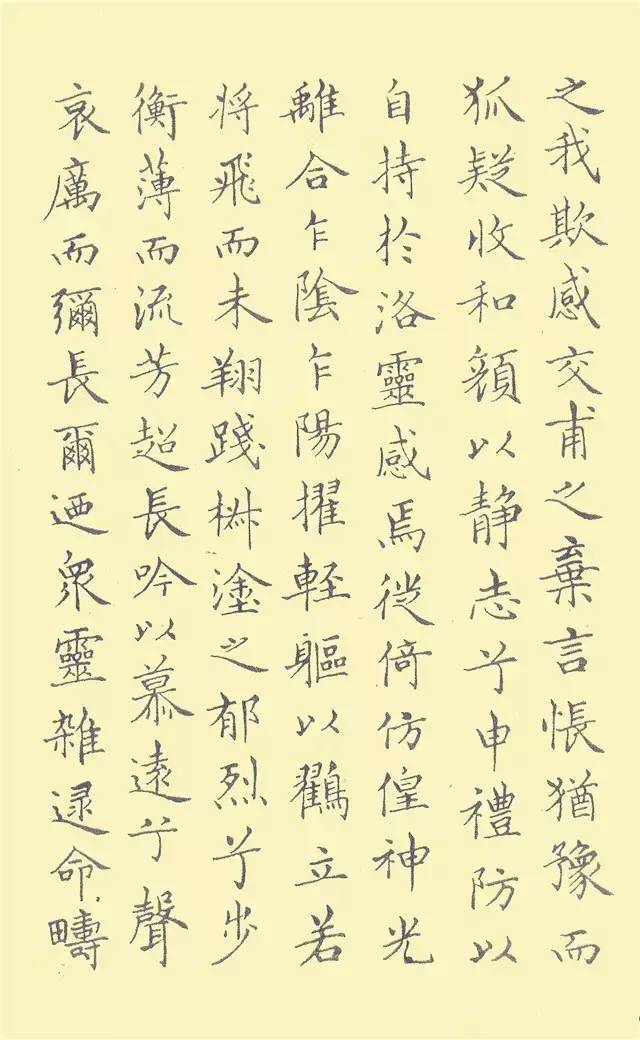 之我欺感交甫之棄言悵猶豫而
狐疑收和顏以静志兮申禮防以
自持於洛靈感焉徙倚仿偟神光
離合乍陰乍陽擢輕軀以鶴立若
將飛而未翔踐椒塗之郁烈兮步
衡薄而流芳超長吟以慕遠兮聲
哀厲而彌長爾迺衆靈雜遝命疇